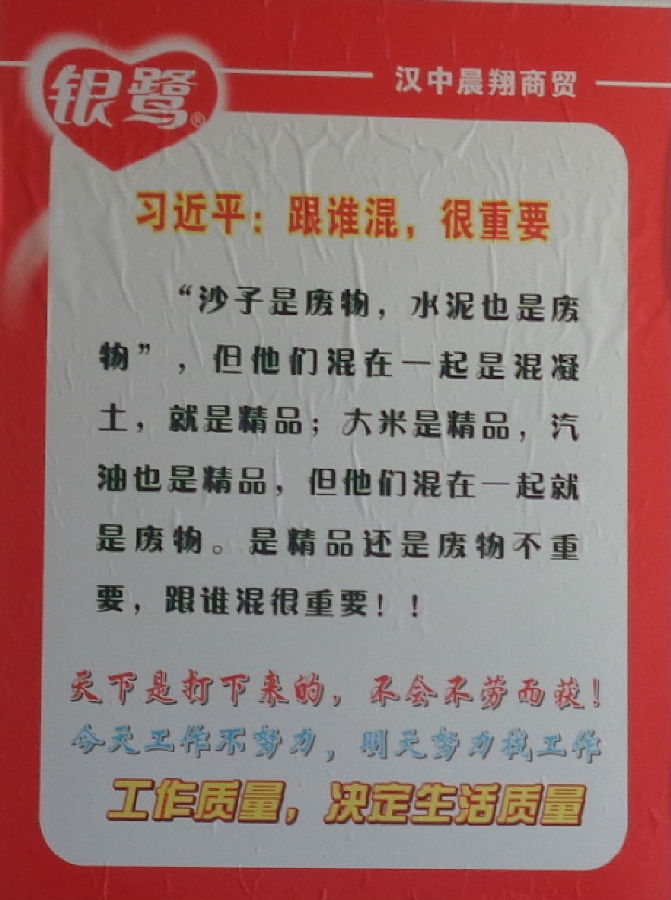 银鹭®
汉中晨翔商贸
习近平：跟谁混，很重要
“沙子是废物，水泥也是废
物”，但他们混在一起是混凝
土，就是精品；大米是精品，汽
油也是精品，但他们混在一起就
是废物。是精品还是废物不重
要，跟谁混很重要！！
天下是打下来的，不会不劳而获！
今天工作不努力，明天努力找工作
工作质量，决定生活质量